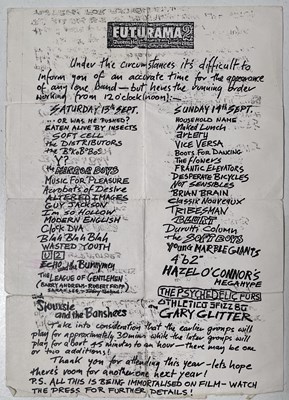 FUTURAMA 2
Queens Hall
Under the circumstances it's difficult to
inform you of an accurate time for the appearance
of any one band — but heres the running order
working from 12 o'clock (noon):—
SATURDAY 13th SEPT.
... OR WAS HE PUSHED?
EATEN ALIVE BY INSECTS
SOFT CELL
the DISTRIBUTORS
the
Y?
the MIRROR BOYS
MUSIC FOR PLEASURE
Acrobats of Desire
ALTERED IMAGES
GUY JACKSON
I'm so HOLLOW
MODERN ENGLISH
Clock DVA
Blah Blah Blah
WASTED YOUTH
U2
ECHO and the Bunnymen
the LEAGUE OF GENTLEMEN
(BARRY ANDREWS - ROBERT FRIPP
Siouxsie and the Banshees
SUNDAY 14th SEPT.
HOUSEHOLD NAME
Naked Lunch
artery
VICE VERSA
BOOTS FOR DANCING
The Flowers
FRANTIC ELEVATORS
DESPERATE BICYCLES
NOT SENSIBLES
BRIAN BRAIN
CLASSIX NOUVEAUX
TRIBESMAN
BLURT
Durutti Column
The SOFT BOYS
YOUNG MARBLE GIANTS
4"be2"
HAZEL O'CONNOR'S
MEGAHYPE
THE PSYCHEDELIC FURS
ATHLETICO SPIZZ 80
GARY GLITTER
Take into consideration that the earlier groups will
play for approximately 30 mins while the later groups will
play for about 45 minutes to an hour — there may be one
or two additions!
Thank you for attending this year — lets hope
there's room for another one next year!
P.S. ALL THIS IS BEING IMMORTALISED ON FILM — WATCH
THE PRESS FOR FURTHER DETAILS!